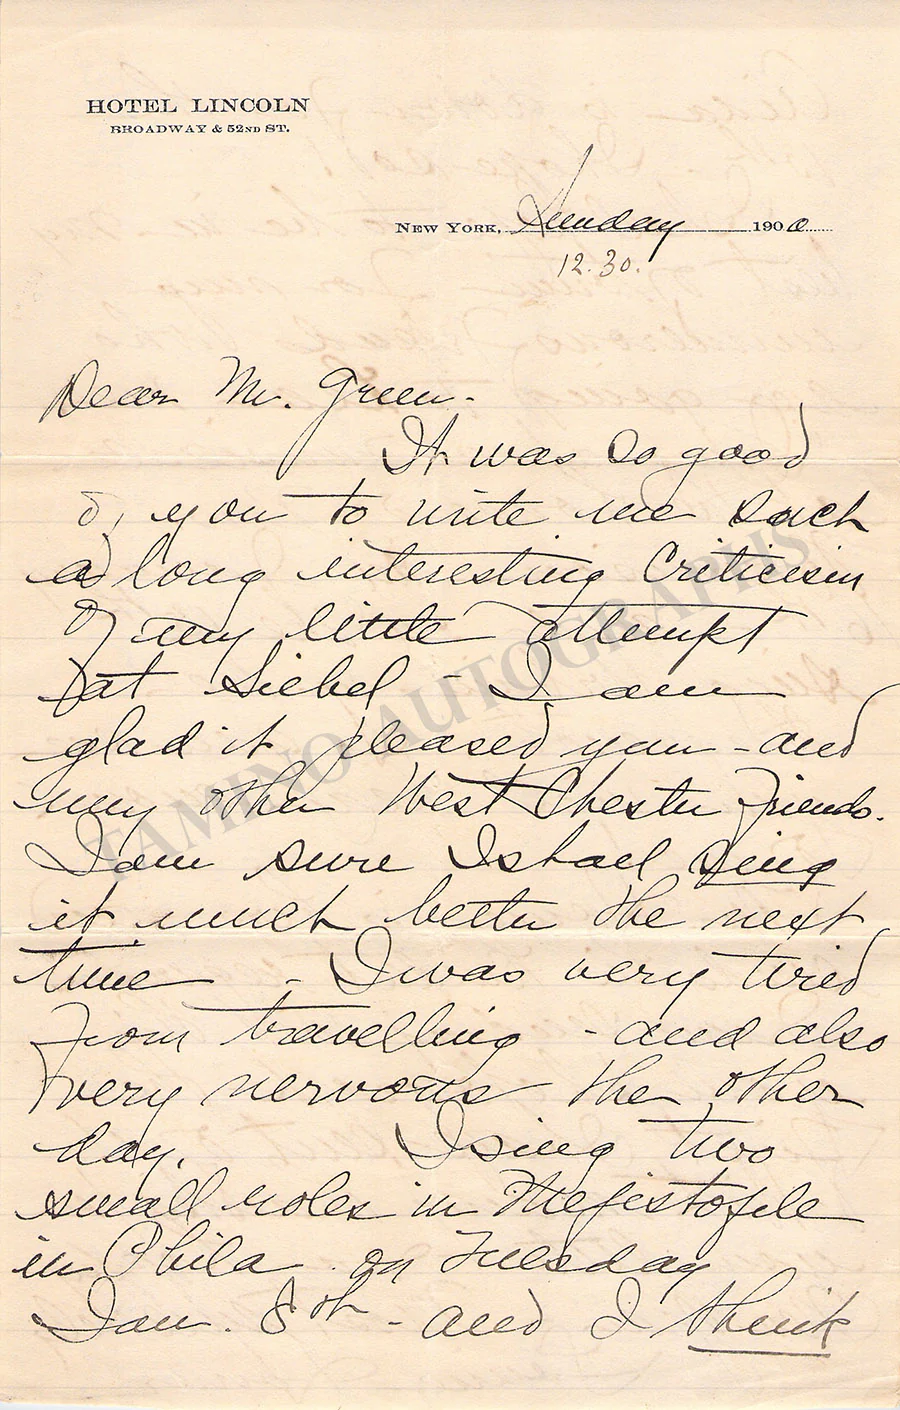 HOTEL LINCOLN
BROADWAY & 52ND ST.
NEW YORK, Sunday 1900
12.30.
Dear Mr. Green-
It was so good
of you to write me such
a long interesting Criticism
of my little attempt
at Siebel - I am
glad it pleased you - and
my other West Chester Friends.
I am sure I shall sing
it much better the next
time - I was very tired
from travelling - and also
very nervous the other
day. I sing two
small roles in Mefistofele
in Phila on Tuesday
Jan. 8th - and I think
TAMINO AUTOGRAPHS